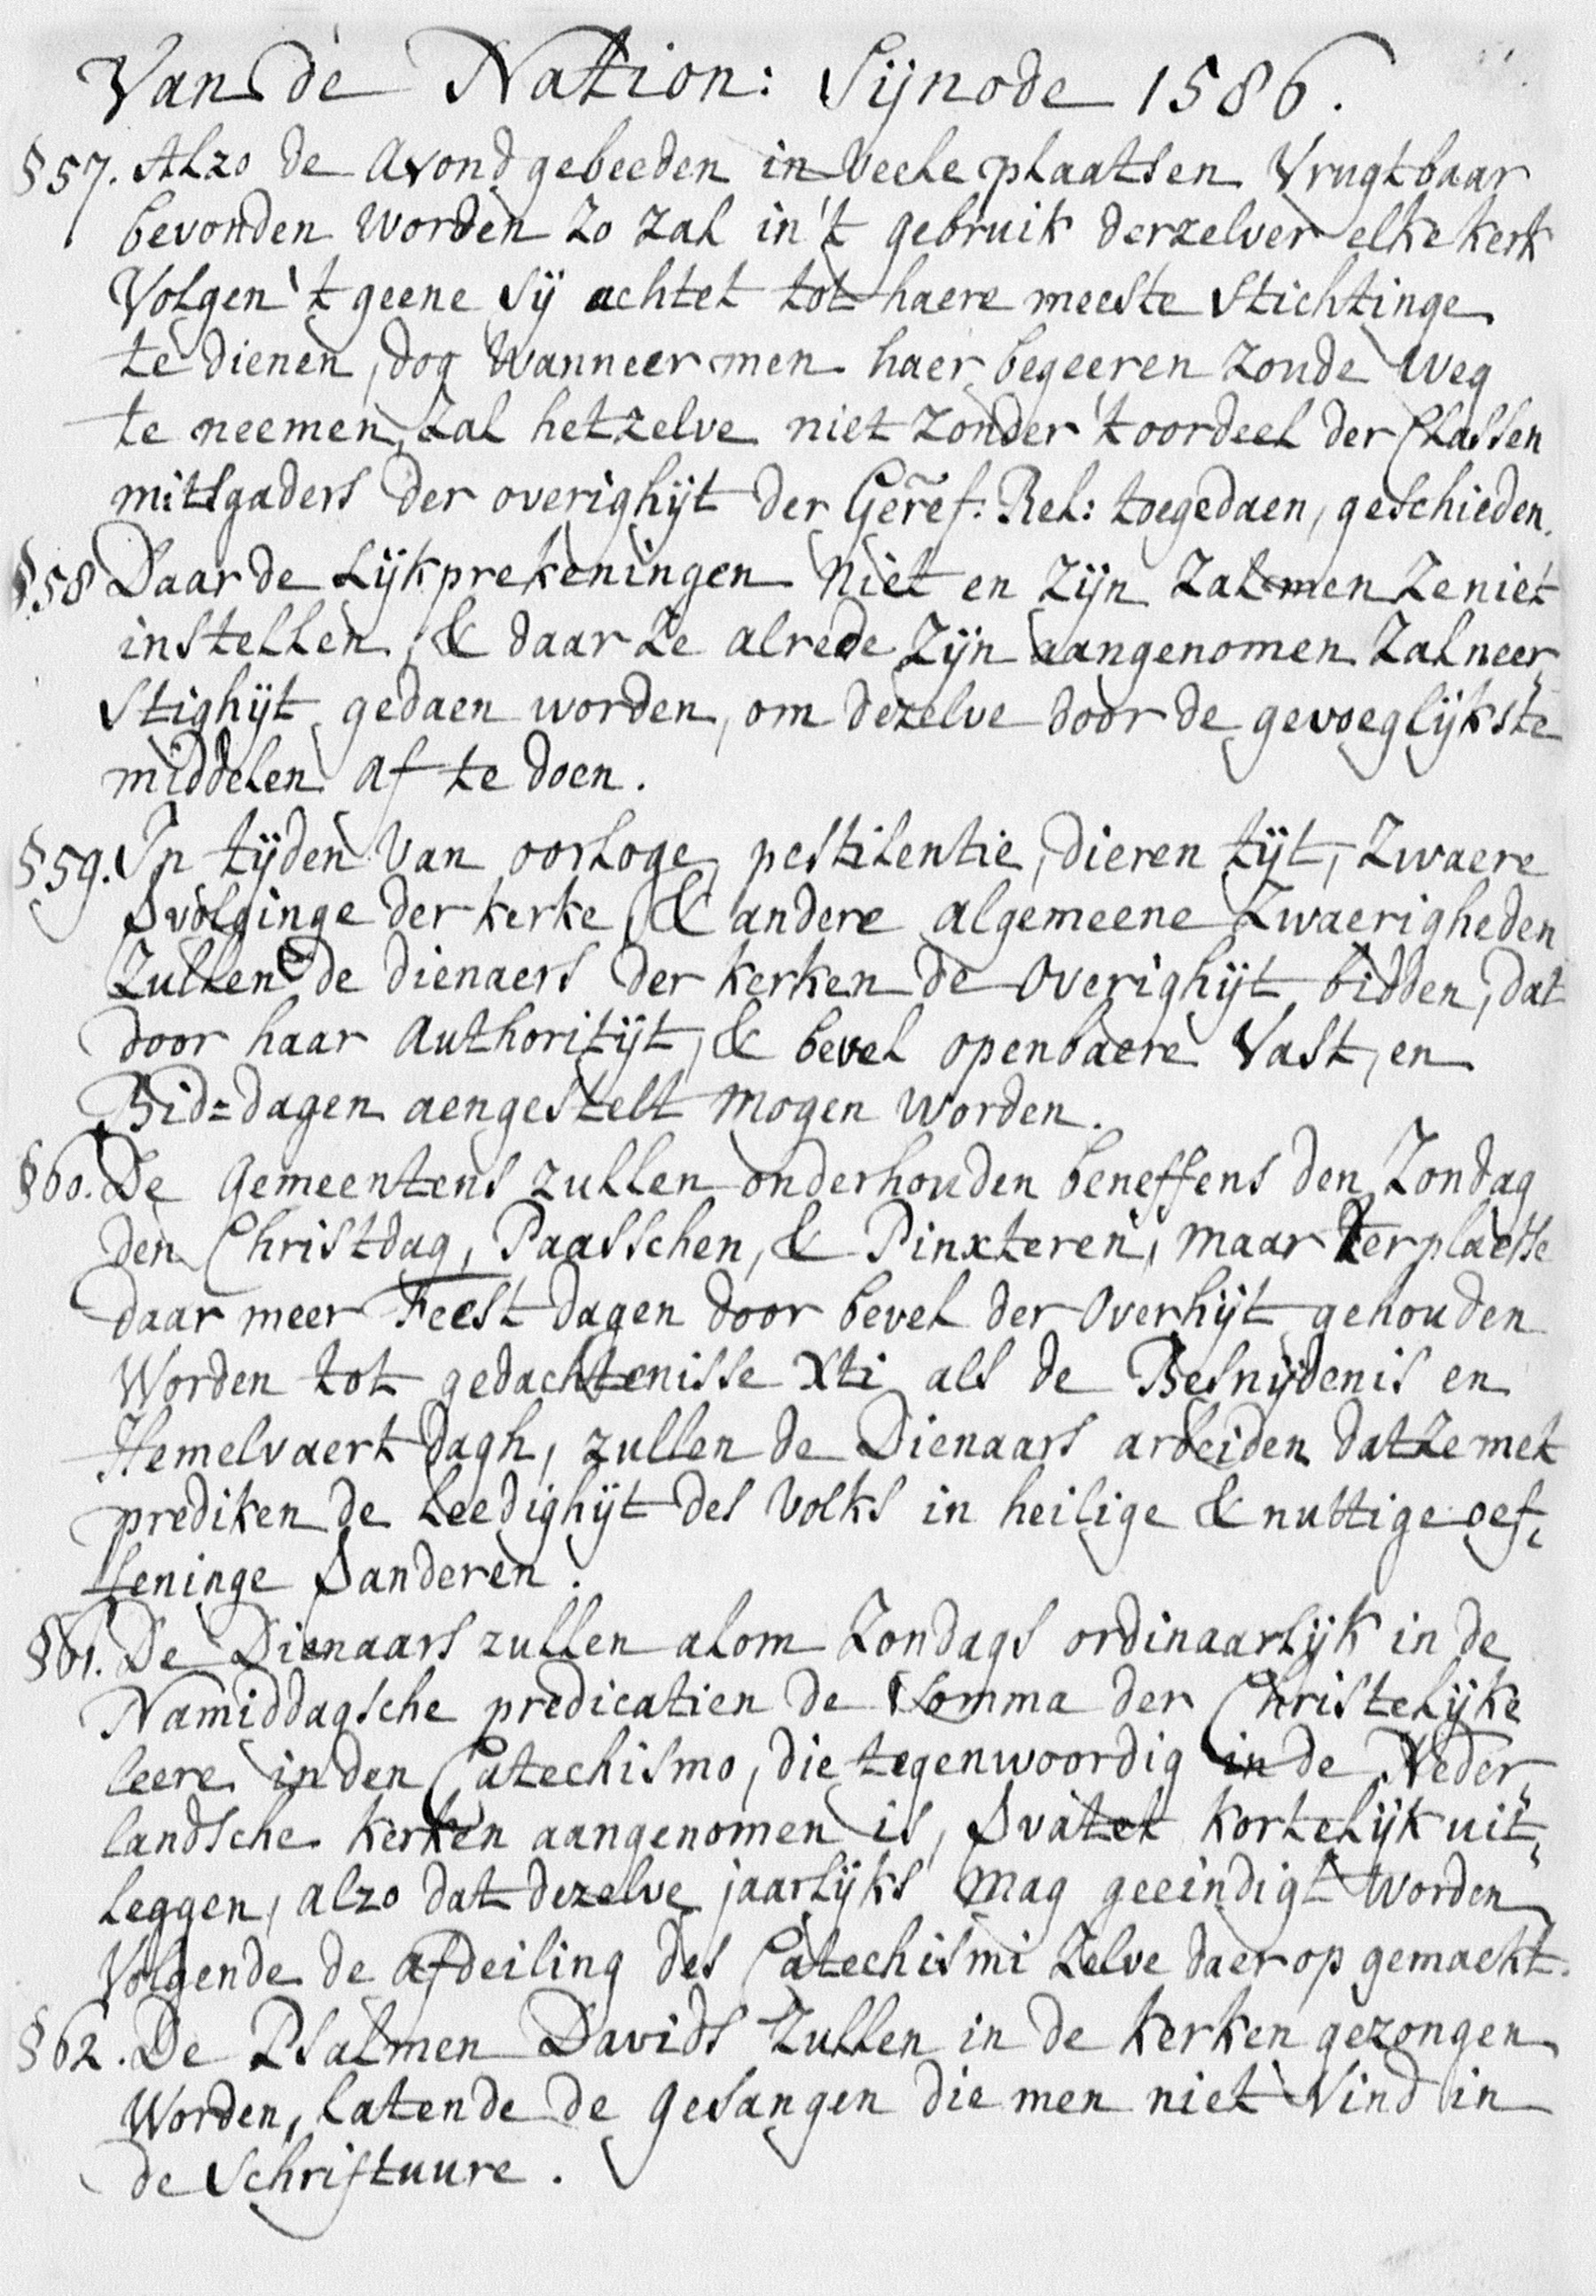 Van de Nation: Sijnode 1586.
§57. Alzo de Avondgebeeden in Veele plaatsen Vrugtbaar
bevonden Worden Zo Zal in 't gebruik derzelver elke kerk
Volgen 't geene Sij achtet tot haere meeste Stichtinge
te dienen, dog Wanneer men haer begeeren Zoude Weg
te neemen, Zal hetzelve niet Zonder 't oordeel der Classen
mitsgaders der overighijt der Gerēf: Rel: toegedaen, geschieden.
§58 Daar de Lijkprekeningen Niet en Zijn Zal men Ze niet
instellen, & daar Ze alrede Zijn aangenomen Zal neer„
stighijt gedaen worden, om dezelve door de gevoeglijkste
middelen af te doen.
§59. In tijden Van oorloge, pestilentie, dieren tijt, Zwaere
Svolginge der kerke, & andere algemeene Zwaerigheden
Zullen de dienaers der kerken de Overighijt bidden, dat
door haar Authoritijt, & bevel openbaere Vast, en
Bid=dagen aengestelt Mogen Worden.
§60. De Gemeentens zullen onderhouden beneffens den Zondag
den Christdag, Paasschen, & Pinxteren, maar terplaetse
daar meer Feest dagen door bevel der Overhijt gehouden
Worden tot gedachtenisse Xti als de Besnijdenis en
Hemelvaert dagh, zullen de Dienaars arbeiden dat Ze met
prediken de Leedighijt des Volks in heilige & nuttige oef„
feninge Sanderen.
§61. De Dienaars zullen alom Zondags ordinaarlijk in de
Namiddagsche predicatien de Somma der Christelijke
leere in den Catechismo, die tegenwoordig in de Neder„
landsche kerken aangenomen is, Svatet kortelijk uit„
Leggen, alzo dat dezelve jaarlijks Mag geeindigt Worden
Volgende de afdeiling des Catechismi Zelve daer op gemacht.
§62. De Psalmen Davids Zullen in de kerken gezongen
Worden, Latende de Gesangen die men niet Vind in
de Schriftuure.